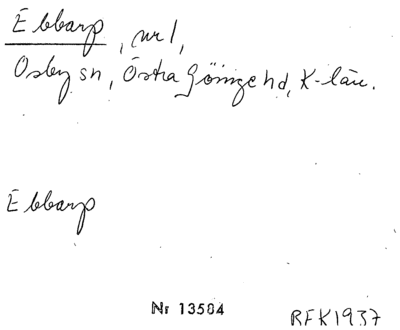 Ebbarp, nr 1,
Osby sn, Östra Göinge hd, K-län.
Ebbarp
Nr 13584
RFK1937